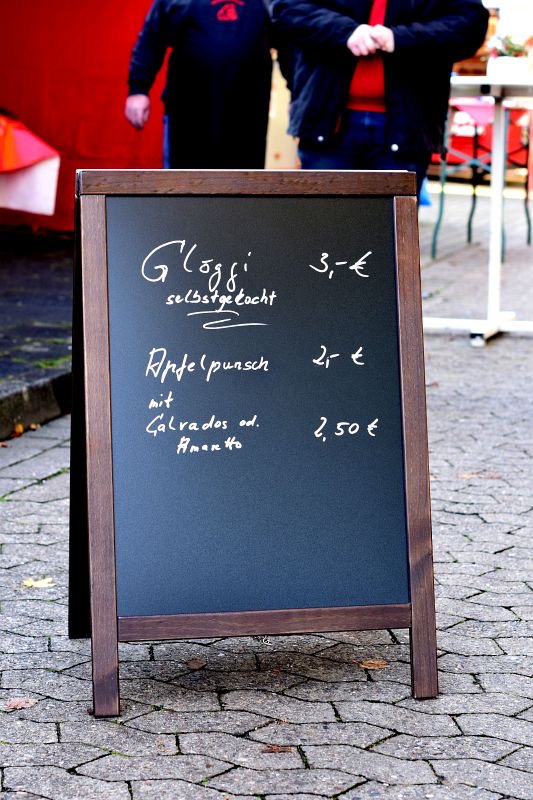 Glöggi 3,- €
selbstgekocht
Apfelpunsch 2,- €
mit
Calvados od. 2,50 €
Amaretto